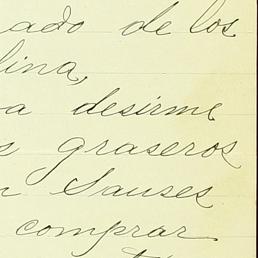 ado de los
lina,
a desirme
s graseros
n Sauses
comprar